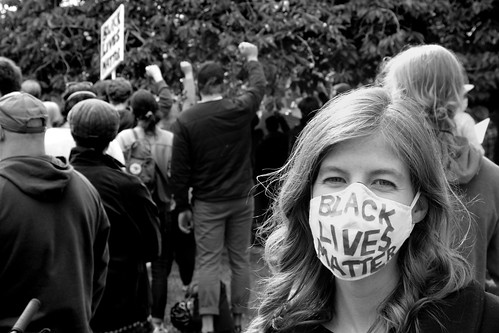 BLACK
LIVES
MATTER
BLACK
LIVES
MATTER